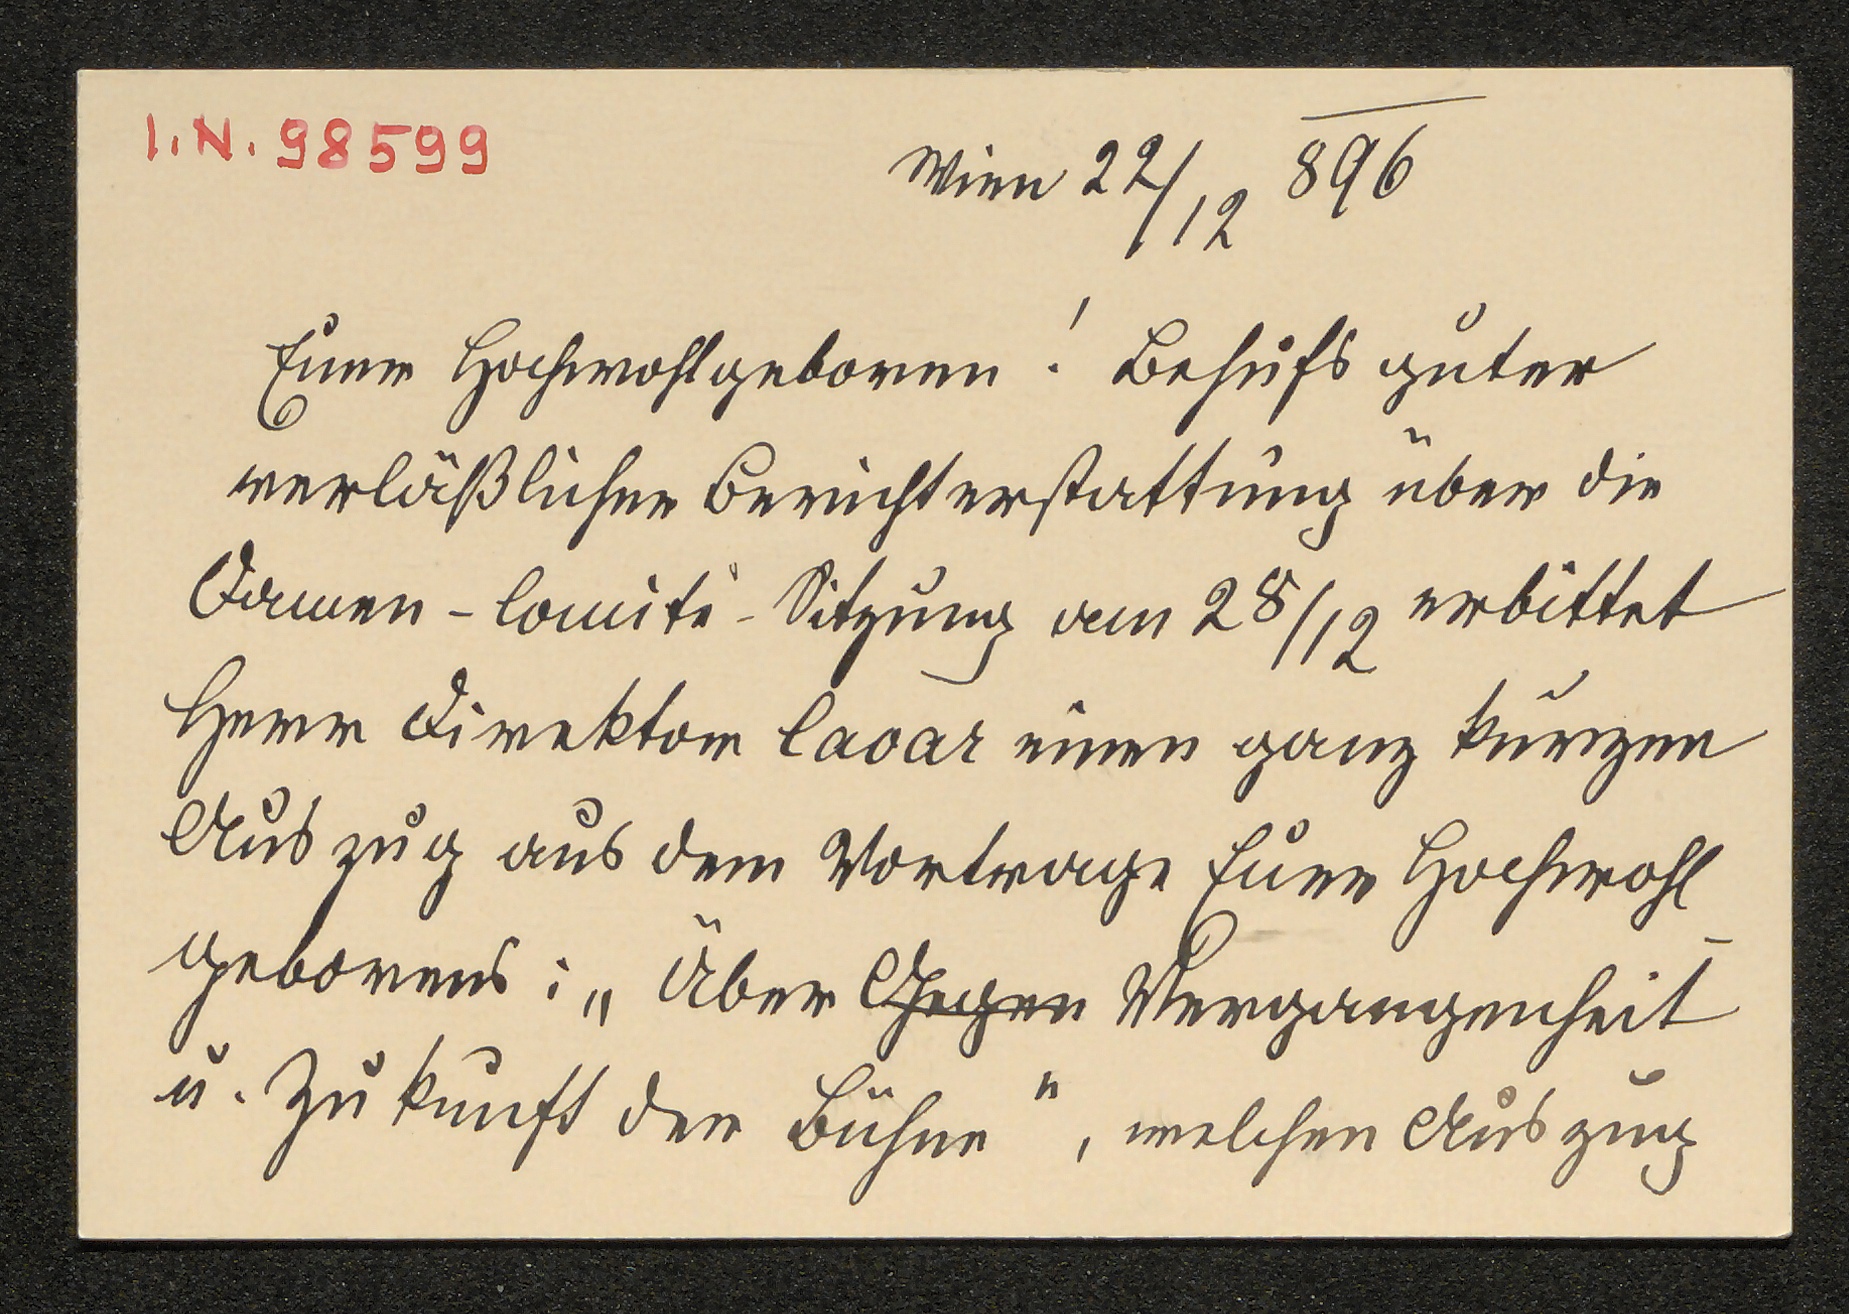 I.N. 98599
Wien 22/12 896
Euer Hochwohlgeboren! Behufs guter
verläßlicher Berichterstattung über die
Damen-Comité-Sitzung am 28/12 erbittet
Herr Direktor Lavar einen ganz kurzen
Auszug aus dem Vortrage Euer Hochwohl-
geborens: „Über Gegen Vergangenheit
u. Zukunft der Bühne", welchen Auszug